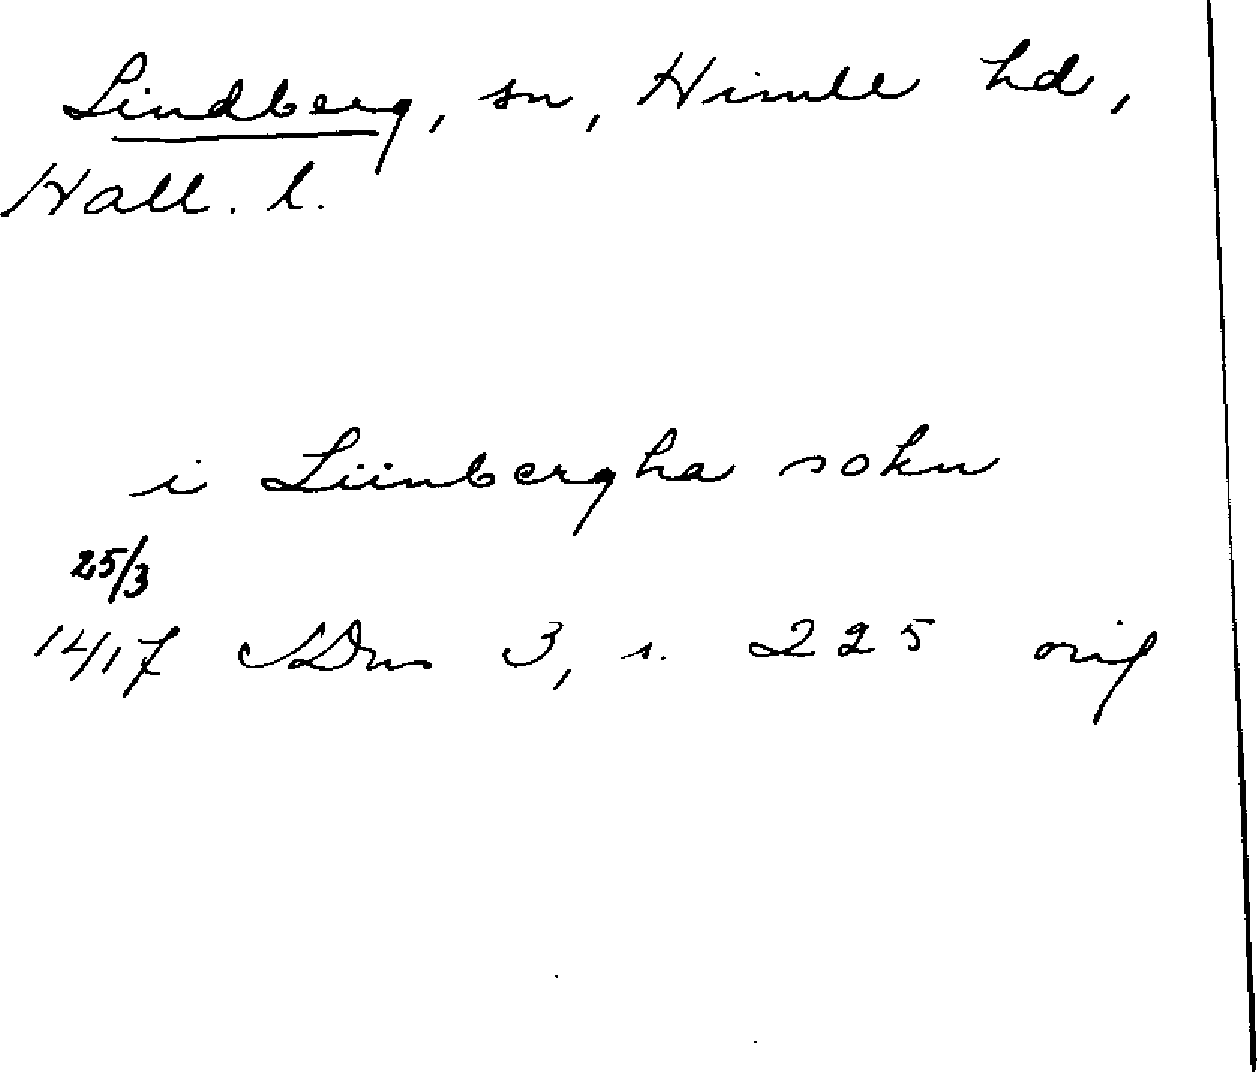 Lindberg, sn, Himle hd,
Hall. l.
i Liinbergha sokn
25/3
1417 SDns 3, s. 225 orig